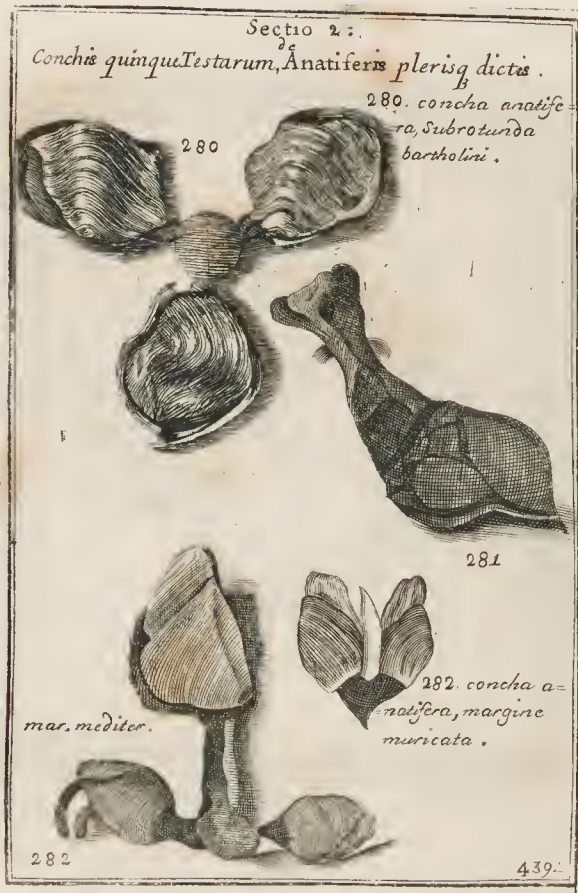 Sectio 2:.
de
Conchis quinqueTestarum, Anatiferis plerisq dictis.
280. concha anatife=
ra, Subrotunda
bartholini.
280
281
282. concha a=
natifera, margine
muricata.
mar. mediter.
282
439.